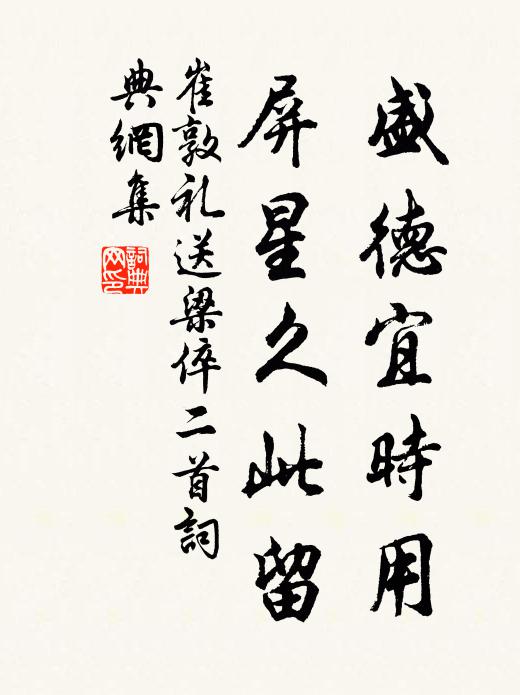 盛德宜時用
屏星久此留
崔敦礼送梁倅二首詞
典網集
詞典網印